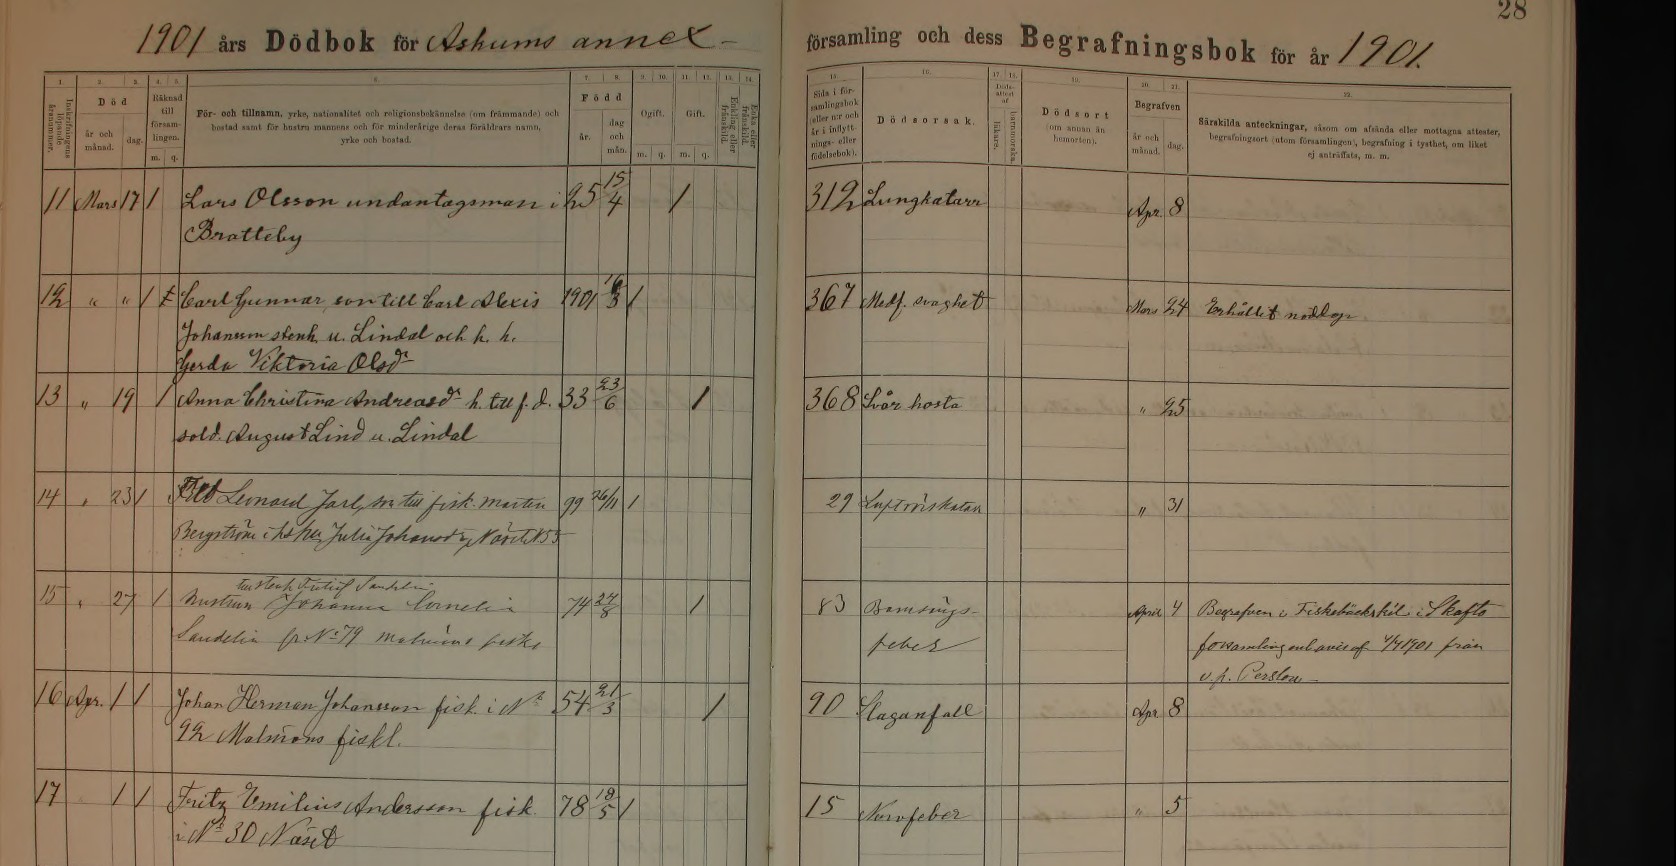 28
1901 års Dödbok för Askums annex –
församling och dess Begrafningsbok för år 1901.
1. 2. 3. 4. 5. 6. 7. 8. 9. 10. 11. 12. 13. 14.
15. 16. 17. 18. 19. 20. 21. 22.
Inskrifningens löpande årsnummer.
Död
år och månad.
dag.
Räknad till församlingen.
m. q.
För- och tillnamn, yrke, nationalitet och religionsbekännelse (om främmande) och
bostad samt för hustru mannens och för minderårige deras föräldrars namn,
yrke och bostad.
Född
år.
dag och mån.
Ogift.
m. q.
Gift.
m. q.
Enkling eller frånskild.
Enka eller frånskild.
Sida i församlingsbok (eller nr och år i inflyttnings- eller födelsebok).
Dödsorsak.
Dödsattest af
läkare.
barnmorska.
Dödsort
(om annan än hemorten).
Begrafven
år och månad.
dag.
Särskilda anteckningar, såsom om afsända eller mottagna attester,
begrafningsort (utom församlingen), begrafning i tysthet, om liket
ej anträffats, m. m.
11 Mars 17 1 Lars Olsson undantagsman i 25 15/4 1 312 Lungkatarr Apr. 8
Bratteby
12 " " 1 Carl Gunnar, son till Carl Alexis 1901 16/3 1 367 Medf. svaghet Mars 24 Erhållit nöddop
Johansson stenh. u. Lindal och h. h.
Gerda Viktoria Olsdr
13 " 19 1 Anna Christina Andreasdr h. till f. d. 33 23/6 1 368 Svår hosta " 25
sold. August Lind u. Lindal
14 " 23 1 Leonard Jarl, son till fisk. Martin 99 26/11 1 29 Luftrörskatarr " 31
Bergström Julia Johansdr, Näset N 55
15 " 27 1 Hustrun Johanna Cornelia 74 24/8 1 83 Barnsängs- April 4 Begrafven i Fiskebäckskil i Skafto
Sandelin Sandelin fr. No 79 Malmöns fiske feber församling enl. 1901 från
v. p.
16 Apr. 1 1 Johan Herman Johansson fisk. i No 54 21/3 1 90 Slaganfall Apr. 8
92 Malmöns fiskl.
17 1 1 Fritz Emilius Andersson fisk. 78 18/5 1 15 Nervfeber " 5
i No 30 Näset